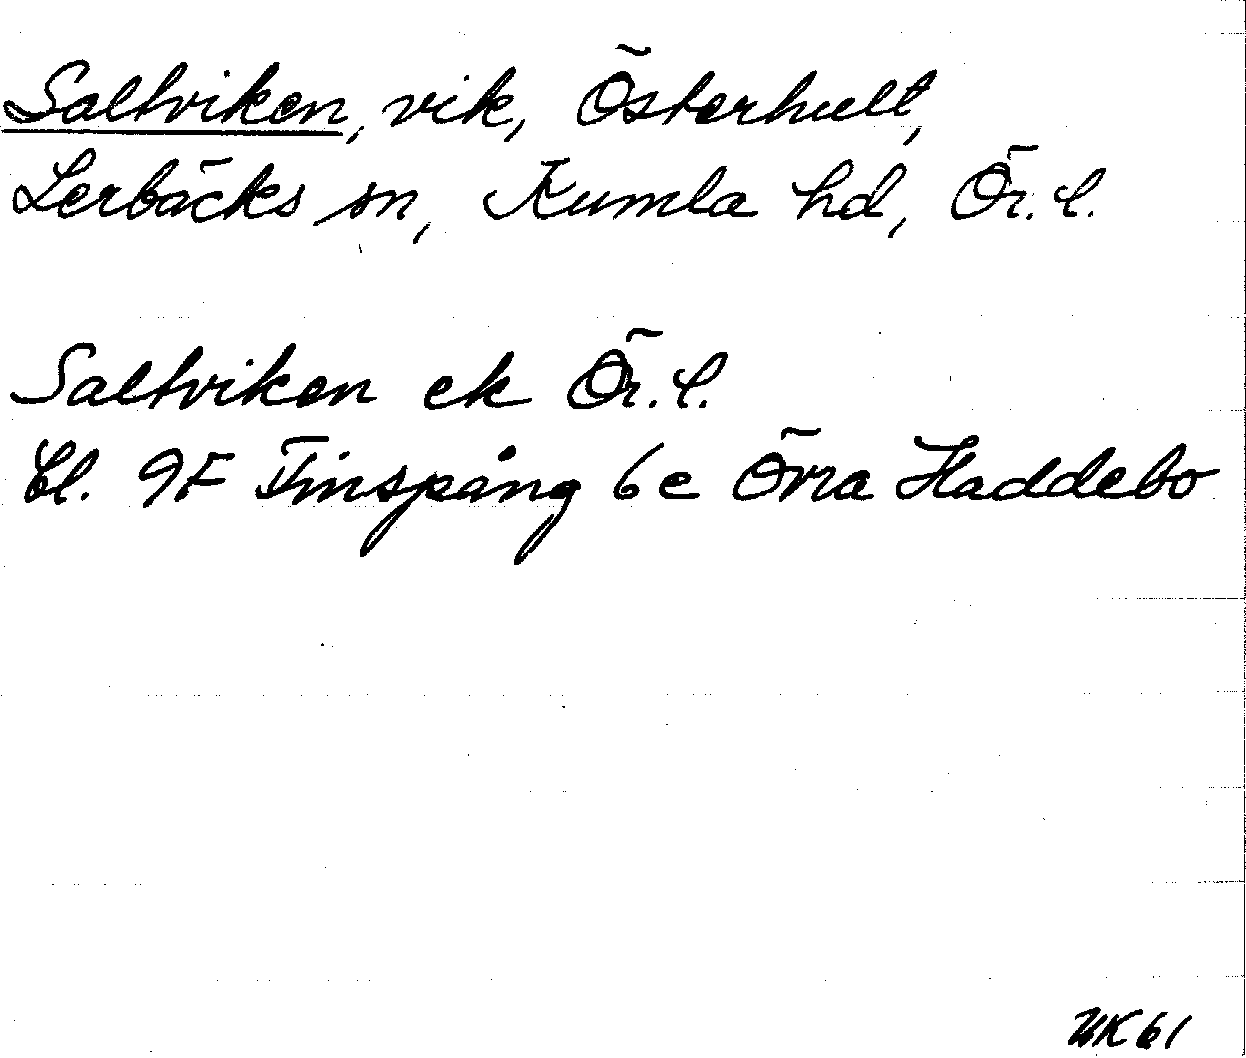 Saltviken, vik, Österhult,
Lerbäcks sn, Kumla hd, Ör. l.
Saltviken ek Ör. l.
bl. 9F Finspång 6e Övra Haddebo
UK 61